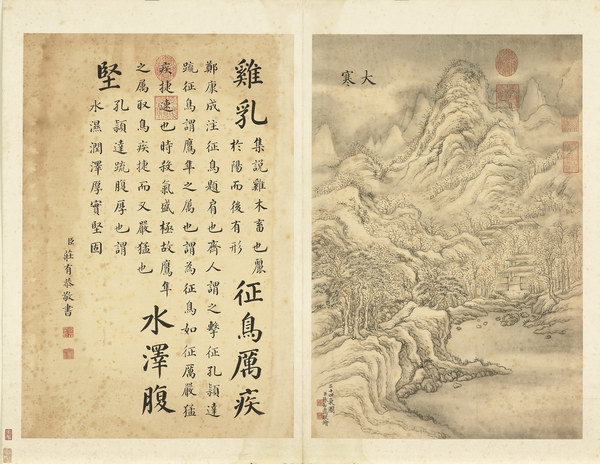 大寒
雞乳
集說雞木畜也麗
於陽而後有形
征鳥厲疾
鄭康成注征鳥題肩也齊人謂之擊征孔頴達
疏征鳥謂鷹隼之屬也謂為征鳥如征厲嚴猛
疾捷速也時殺氣盛極故鷹隼
之屬取鳥疾捷而又嚴猛也
水澤腹
堅
孔頴達疏腹厚也謂
水濕潤澤厚實堅固
臣莊有恭敬書